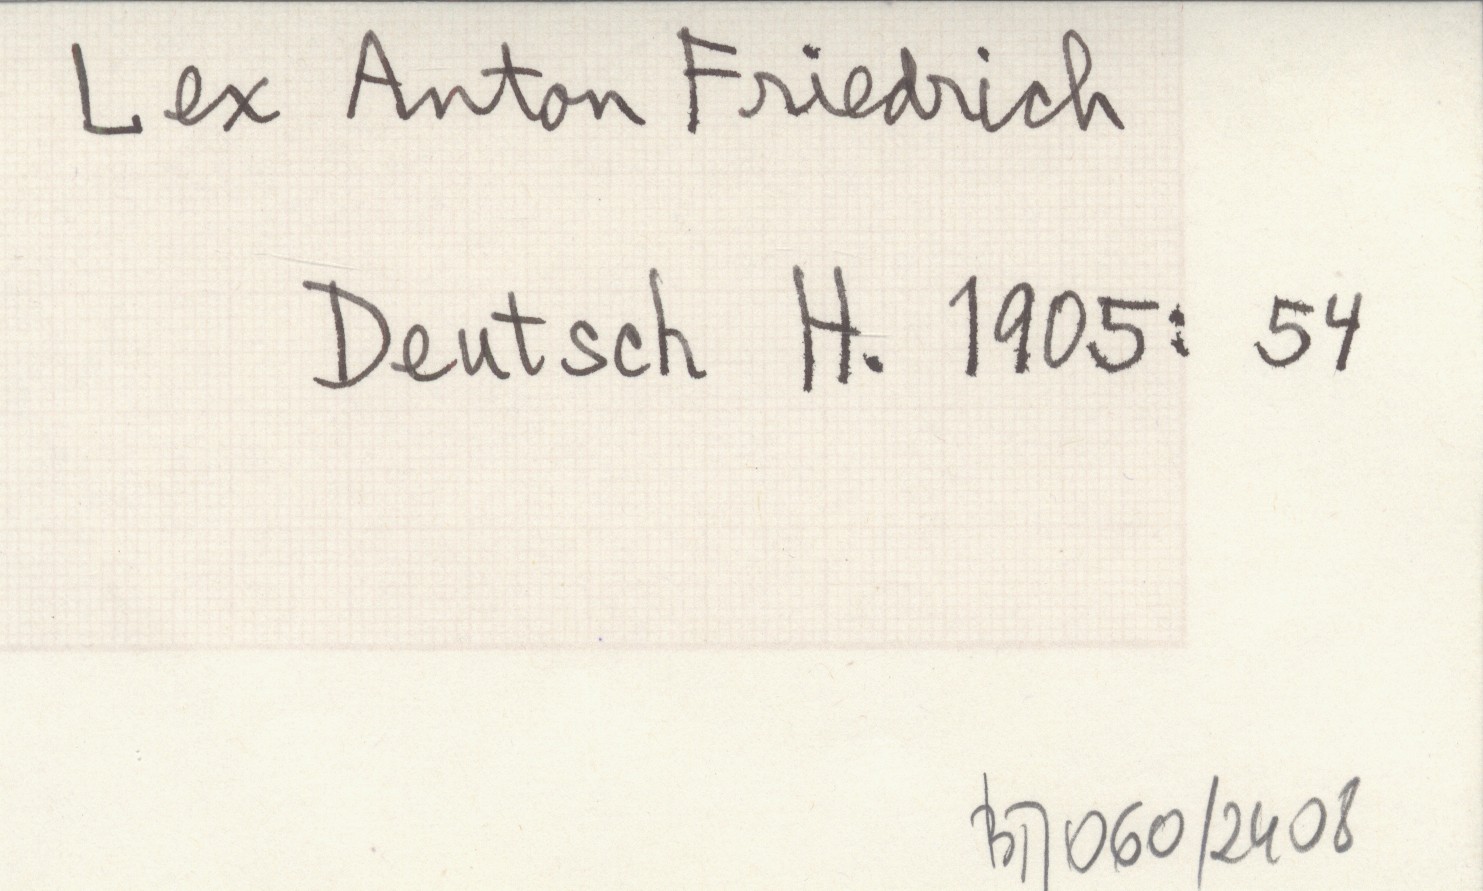 Lex Anton Friedrich
Deutsch H. 1905: 54
060/2408